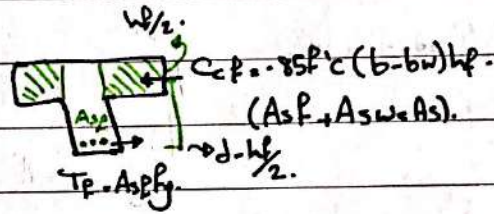 hf/2.
Ccf = .85f'c (b-bw) hf.
(Asf + Asw = As).
Asf
d-hf/2.
Tf = Asf fy.